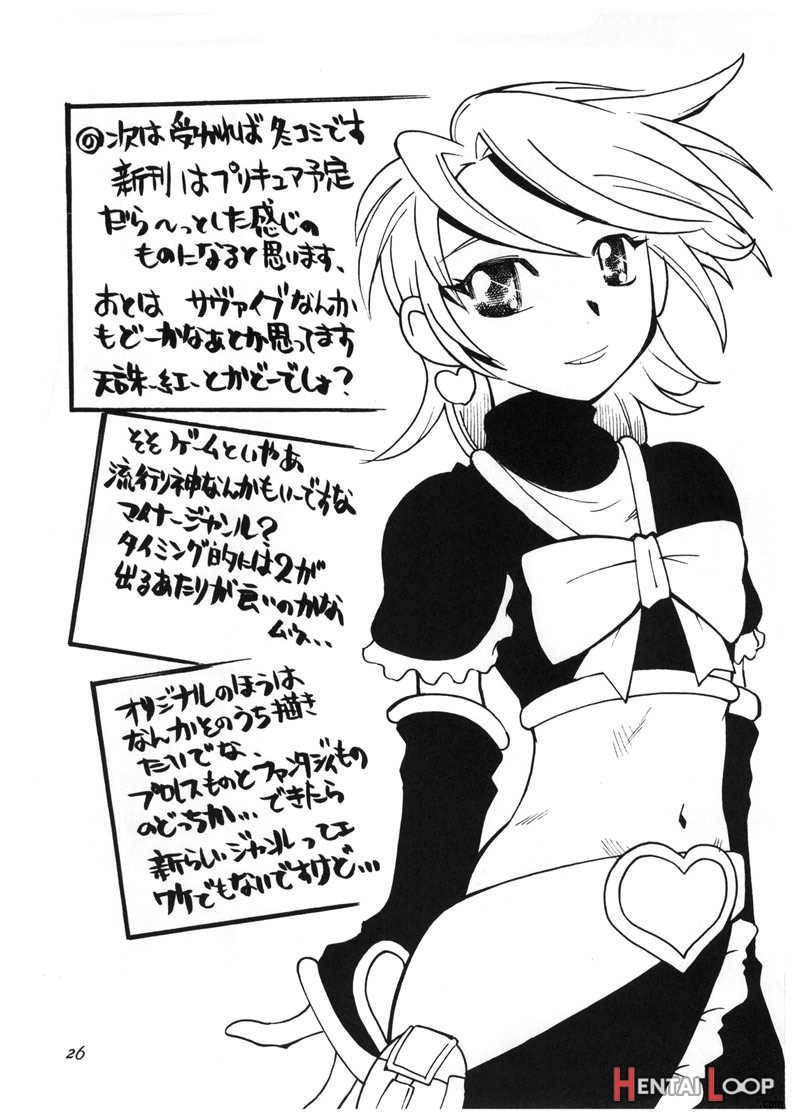 の次は受かれば冬コミです
新刊はプリキュア予定
だら〜っとした感じの
ものになると思います、
あとは サヴァイブなんか
もどーかなぁとか思ってます
天誅-紅-とかどーでしょ？
そそ ゲームといやぁ
流行り神なんかもいーですな
マイナージャンル？
タイミング的には2が
出るあたりが良いのかなぁ
ムゥ…
オリジナルのほうは
なんかそのうち描き
たいでな、
プロレスものとファンタジィもの
のどっちか… できたら
新らしいジャンルってェ
ワケでもないですけど…
26
HENTAI LOOP